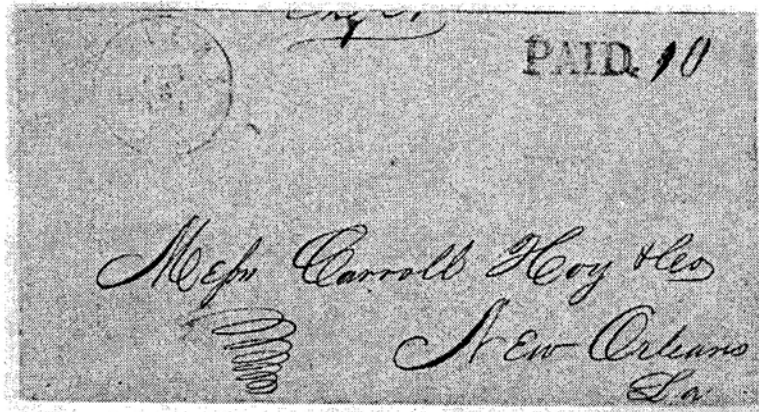 PAID. 10
Messrs Carroll Hoy & Co
New Orleans
La